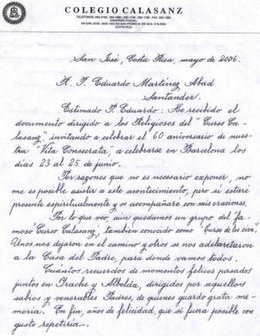 COLEGIO CALASANZ
San José, Costa Rica, mayo de 2006.
R. P. Eduardo Martínez Abad
Santander.
Estimado P. Eduardo: He recibido el
documento dirigido a los Religiosos del "Curso Ca-
lasanz," invitando a celebrar el 60 aniversario de nues-
tra "Vita Consecrata", a celebrarse en Barcelona los
días 23 al 25 de junio.
Por razones que no es necesario exponer, no
me es posible asistir a este acontecimiento, pero sí estaré
presente espiritualmente y os acompañaré con mis oraciones.
Por lo que veo, aún quedamos un grupo del fa-
moso "Curso Calasanz", también conocido como
Unos nos dejaron en el camino y otros se nos adelantaron
a la Casa del Padre, para donde vamos todos.
Cuántos recuerdos de momentos felices pasados
juntos en Irache y Albelda, dirigidos por aquellos
sabios y venerables Padres, de quienes guardo grata me-
moria. En fin, años de felicidad, que si fuera posible con
gusto repetiría.